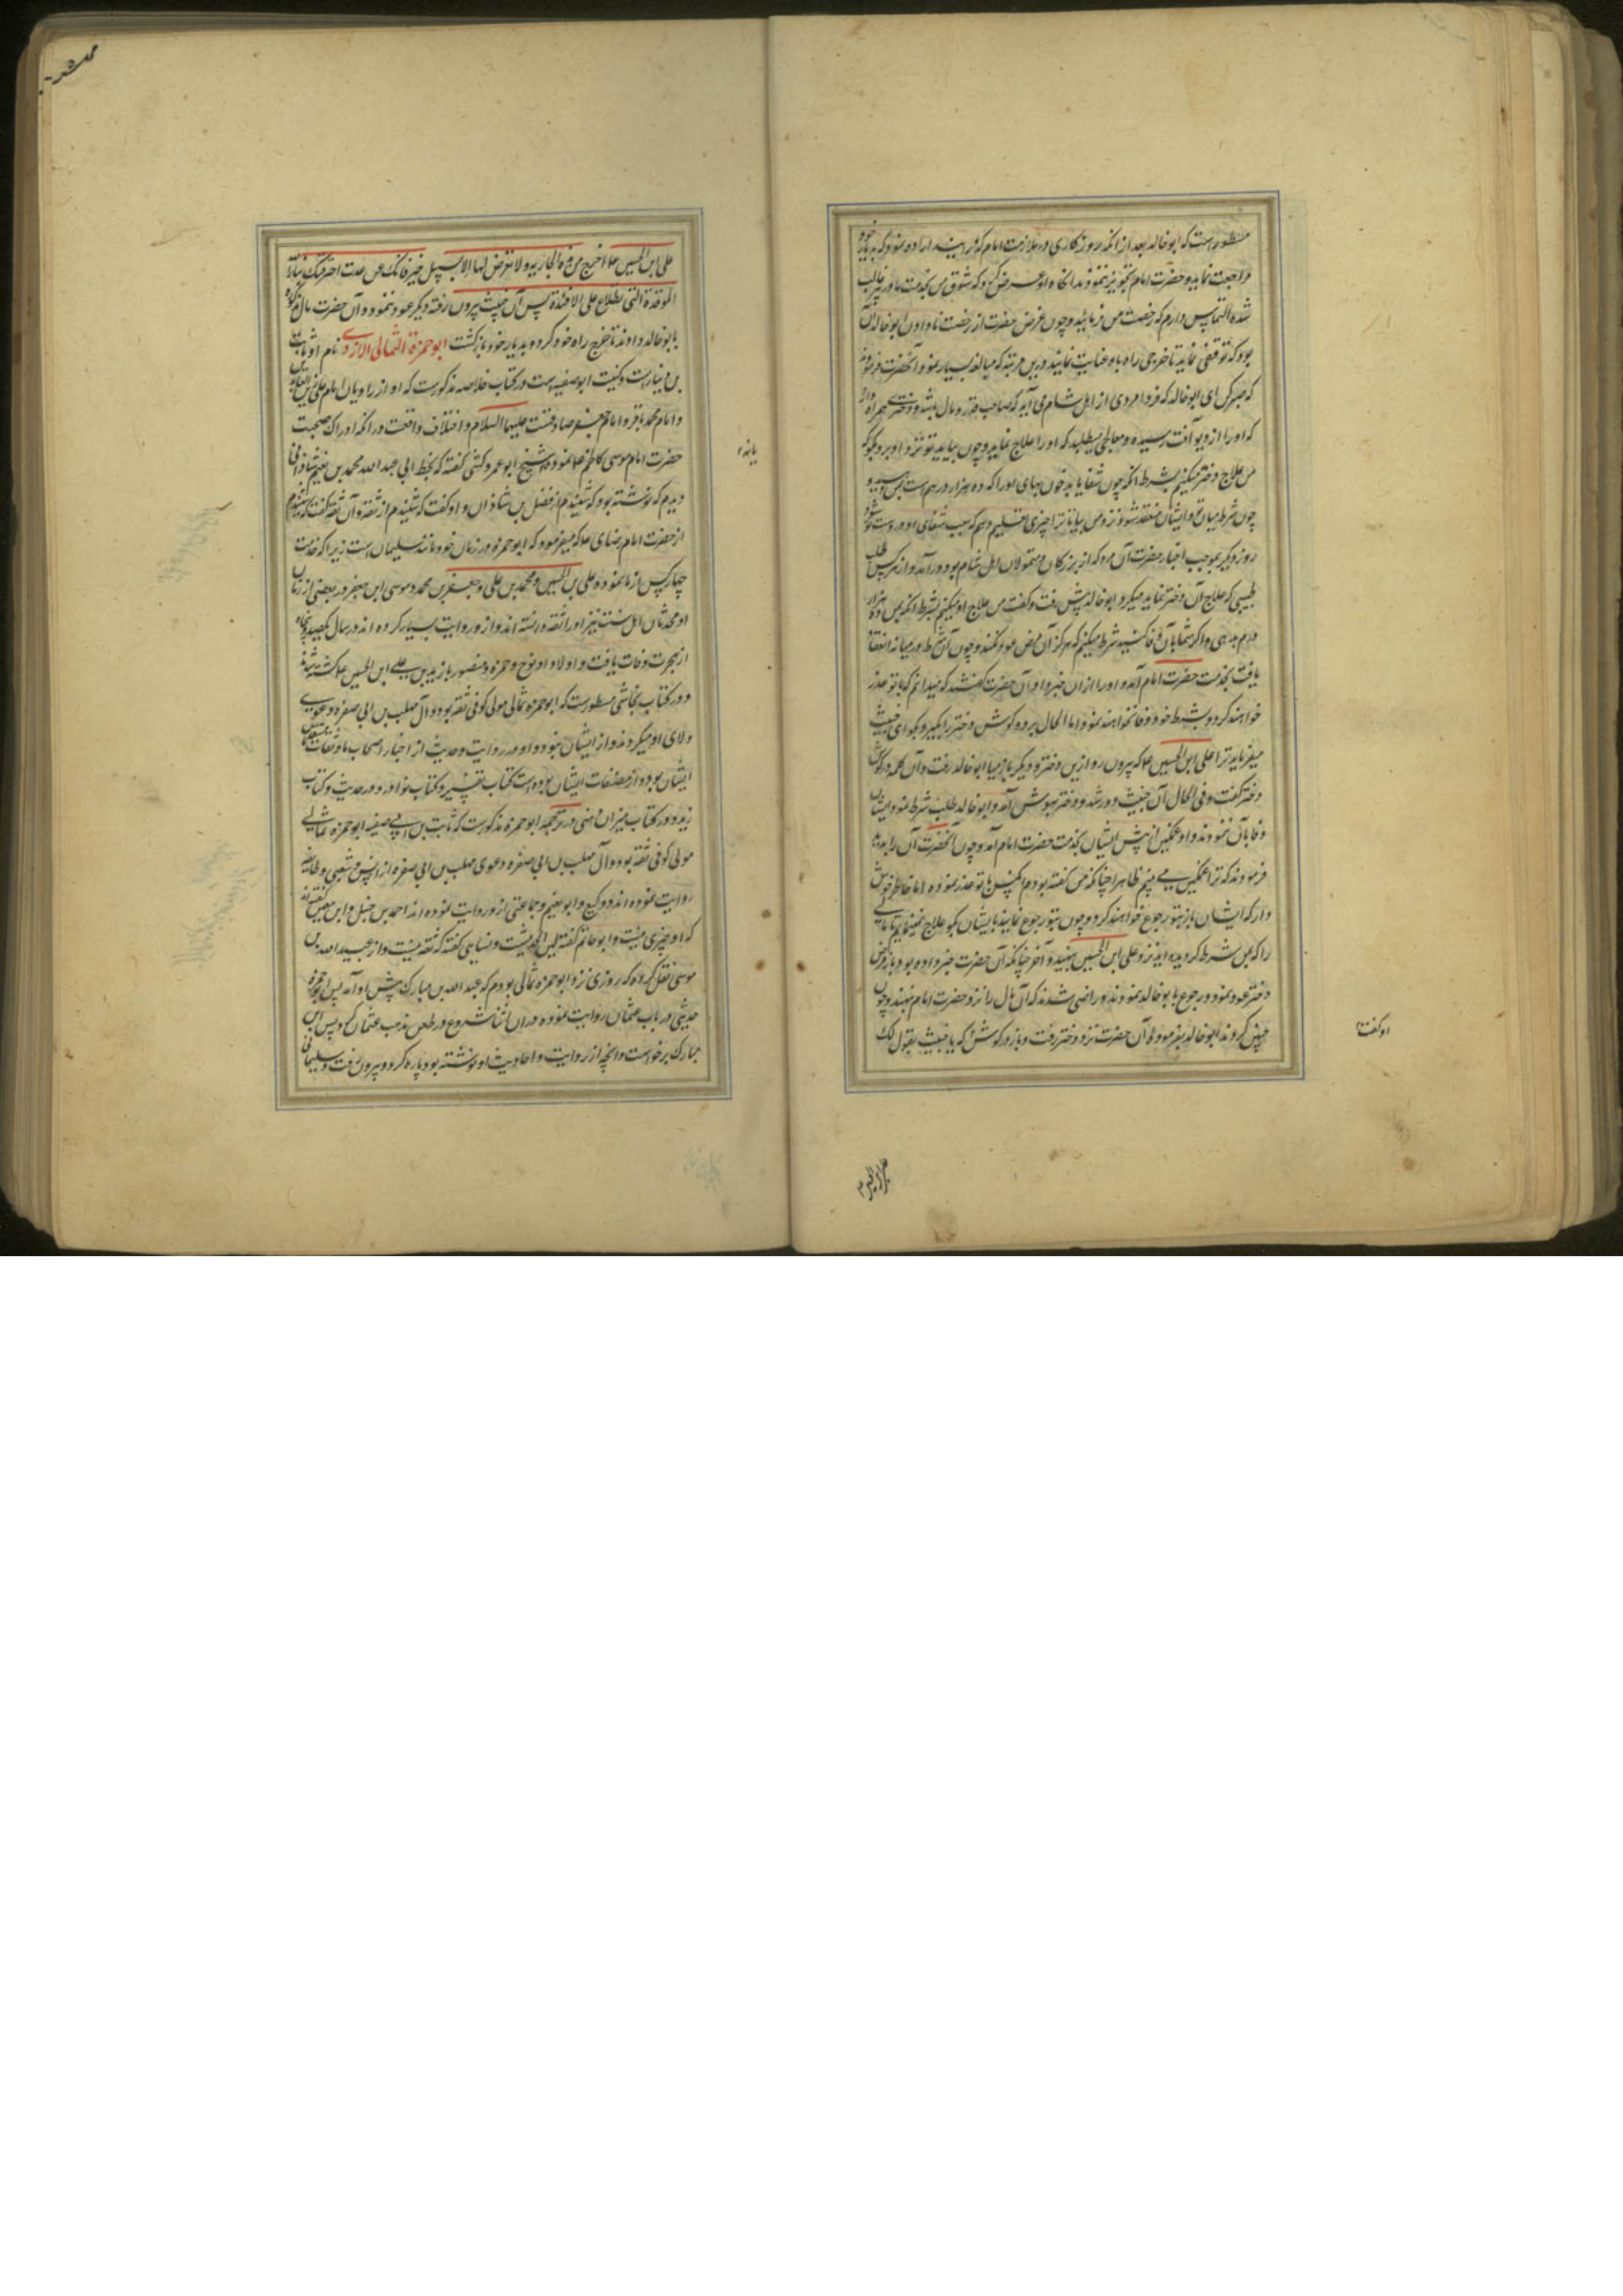 مسطور است که ابو خالد بعد از آنکه روزگاری در ملازمت امام گذرانید اراده نمود که بدیار خود
مراجعت نماید و حضرت امام تجویز ننمودند آنگاه او عرض کرد که شوق من بخدمت مادر پیر غالب
شده التماس دارم که رخصت من فرمایند و چون غرض حضرت از رخصت نادادن ابو خالد آن
بود که توقفی نماید تا خرجی راه باو عنایت نمایند درین مرتبه که مبالغه بسیار نمود آنحضرت فرمودند
که صبر کن ای ابو خالد که فردا مردی از اهل شام می آید که صاحب قدر و مال باشد و دختری همراه دارد
که او را از دیو آفت رسیده و معالجی میطلبد که او را علاج نماید و چون بیاید تو نزد او برو و بگو که
من علاج دختر میکنم بشرط آنکه چون شفا یابد خون بهای او را که ده هزار درهم است بمن دهید و
چون شرط میان تو و ایشان منعقد شود نزد من بیا تا ترا چیزی تعلیم دهم که سبب شفای او در دست تو شود
روز دیگر بموجب اخبار حضرت آن مرد که از بزرگان و متمولان اهل شام بود در آمد و از هر کس طلب
طبیبی که علاج آن دختر نماید میکرد ابو خالد پیش رفت و گفت من علاج او میکنم بشرط آنکه بمن ده هزار
درم بدهی و اگر شما بآن وفا کنید شرط میکنم که هرگز آن مرض عود نکند و چون آن شرط در میانه انعقاد
یافت بخدمت حضرت امام آمد و او را از آن خبر داد آن حضرت گفتند که میدانم که با تو غدر
خواهند کرد و بشرط خود وفا نخواهند نمود اما الحال برو و گوش دختر را بگیر و بگو ای خبیث
میفرماید ترا علی ابن الحسین ع که بیرون رو ازین دختر و دیگر باز میا ابو خالد رفت و آن کلمه در گوش
دختر گفت و فی الحال آن خبیث دور شد و دختر بهوش آمد و ابو خالد طلب شرط نمود ایشان
وفا بآن ننمودند و او غمگین از پیش ایشان بخدمت حضرت امام آمد و چون آنحضرت آن را بدید
فرمودند که ترا غمگین می بینم ظاهرا چنانکه من گفته بودم آنکس با تو غدر نموده اما خاطر خوش
دار که ایشان باز بتو رجوع خواهند کرد و چون بتو رجوع نمایند بایشان بگو علاج نمینمایم تا مالی
را که بمن شرط کرده اید نزد علی ابن الحسین ننهید و آخر چنانکه آن حضرت خبر داده بود باز مرض
دختر عود نمود و رجوع بابو خالد نمودند و راضی شدند که آن مال را نزد حضرت امام بنهند و چون
چنین کردند ابو خالد بفرموده آن حضرت نزد دختر رفت و باز در گوش او گفت که یا خبیث یقول لک
علی ابن الحسین ع اخرج من هذه الجاریه و لا تعرض لها الا بسبیل خیر فانک ان عدت احرقتک بنار الله
الموقدة التی تطلع علی الافئدة پس آن خبیث بیرون رفته دیگر عود ننمود و آن حضرت مال مذکور
بابو خالد دادند تا خرج راه خود کرد و بدیار خود بازگشت ابو حمزة الثمالی الازدی نام او ثابت
بن دینار است و کنیت ابو صفیه است در کتاب خلاصه مذکورست که او از راویان امام علی زین العابدین
و امام محمد باقر و امام جعفر صادقست علیهما السلام و اختلاف واقعست در آنکه ادراک صحبت
حضرت امام موسی کاظم ع نموده شیخ ابو عمرو کشی گفته که بخط ابی عبد الله محمد بن نعیم شاذانی
دیدم که نوشته بود که شنیدم از فضل بن شاذان و او گفت که شنیدم از ثقه و آن ثقه گفت که شنیدم
از حضرت امام رضا ع که میفرمود که ابو حمزه در زمان خود مانند سلیمان است زیرا که خدمت
چهار کس از ما نموده علی بن الحسین و محمد بن علی و جعفر بن محمد و موسی ابن جعفر در بعضی از زمان
او محدثان اهل سنت نیز او را ثقه دانسته اند و از و روایت بسیار کرده اند در سال یکصد و پنجاه
از هجرت وفات یافت و اولاد او نوح و حمزه و منصور با زید بن علی ابن الحسین ع کشته شدند
و در کتاب نجاشی مسطورست که ابو حمزه ثمالی مولی کوفی ثقه بود و آل مهلب بن ابی صفره دعوی
ولای او میکردند و از ایشان نبود و او در روایت و حدیث از اخیار اصحاب ما و ثقات معتمدین
ایشان بود و از مصنفات ایشان بوده است کتاب تفسیر و کتاب نوادر و در حدیث و کتاب
زهد و در کتاب میزان ذهبی در ترجمه ابو حمزه مذکورست که ثابت بن ابی صفیه ابو حمزه ثمالی
مولی کوفی ثقه بود و آل مهلب بن ابی صفره دعوی مهلب بن ابی صفره از انس و شعبی و طایفه
روایت نموده اند و وکیع و ابو نعیم و جماعتی از و روایت نموده اند احمد بن حنبل و ابن معین گفته اند
که او چیزی نیست و ابو حاتم گفته لین الحدیثست و نسایی گفته که ثقه نیست و از عبید الله بن
موسی نقل کرده که روزی نزد ابو حمزه ثمالی بودم که عبد الله بن مبارک پیش او آمد پس ابو حمزه
حدیثی در باب عثمان روایت نموده در آن اثنا شروع در طعن مذهب عثمان کرد پس ابن
مبارک برخواست و آنچه از روایت و احادیث او نوشته بود پاره کرد و بیرون رفت و سلیمانی